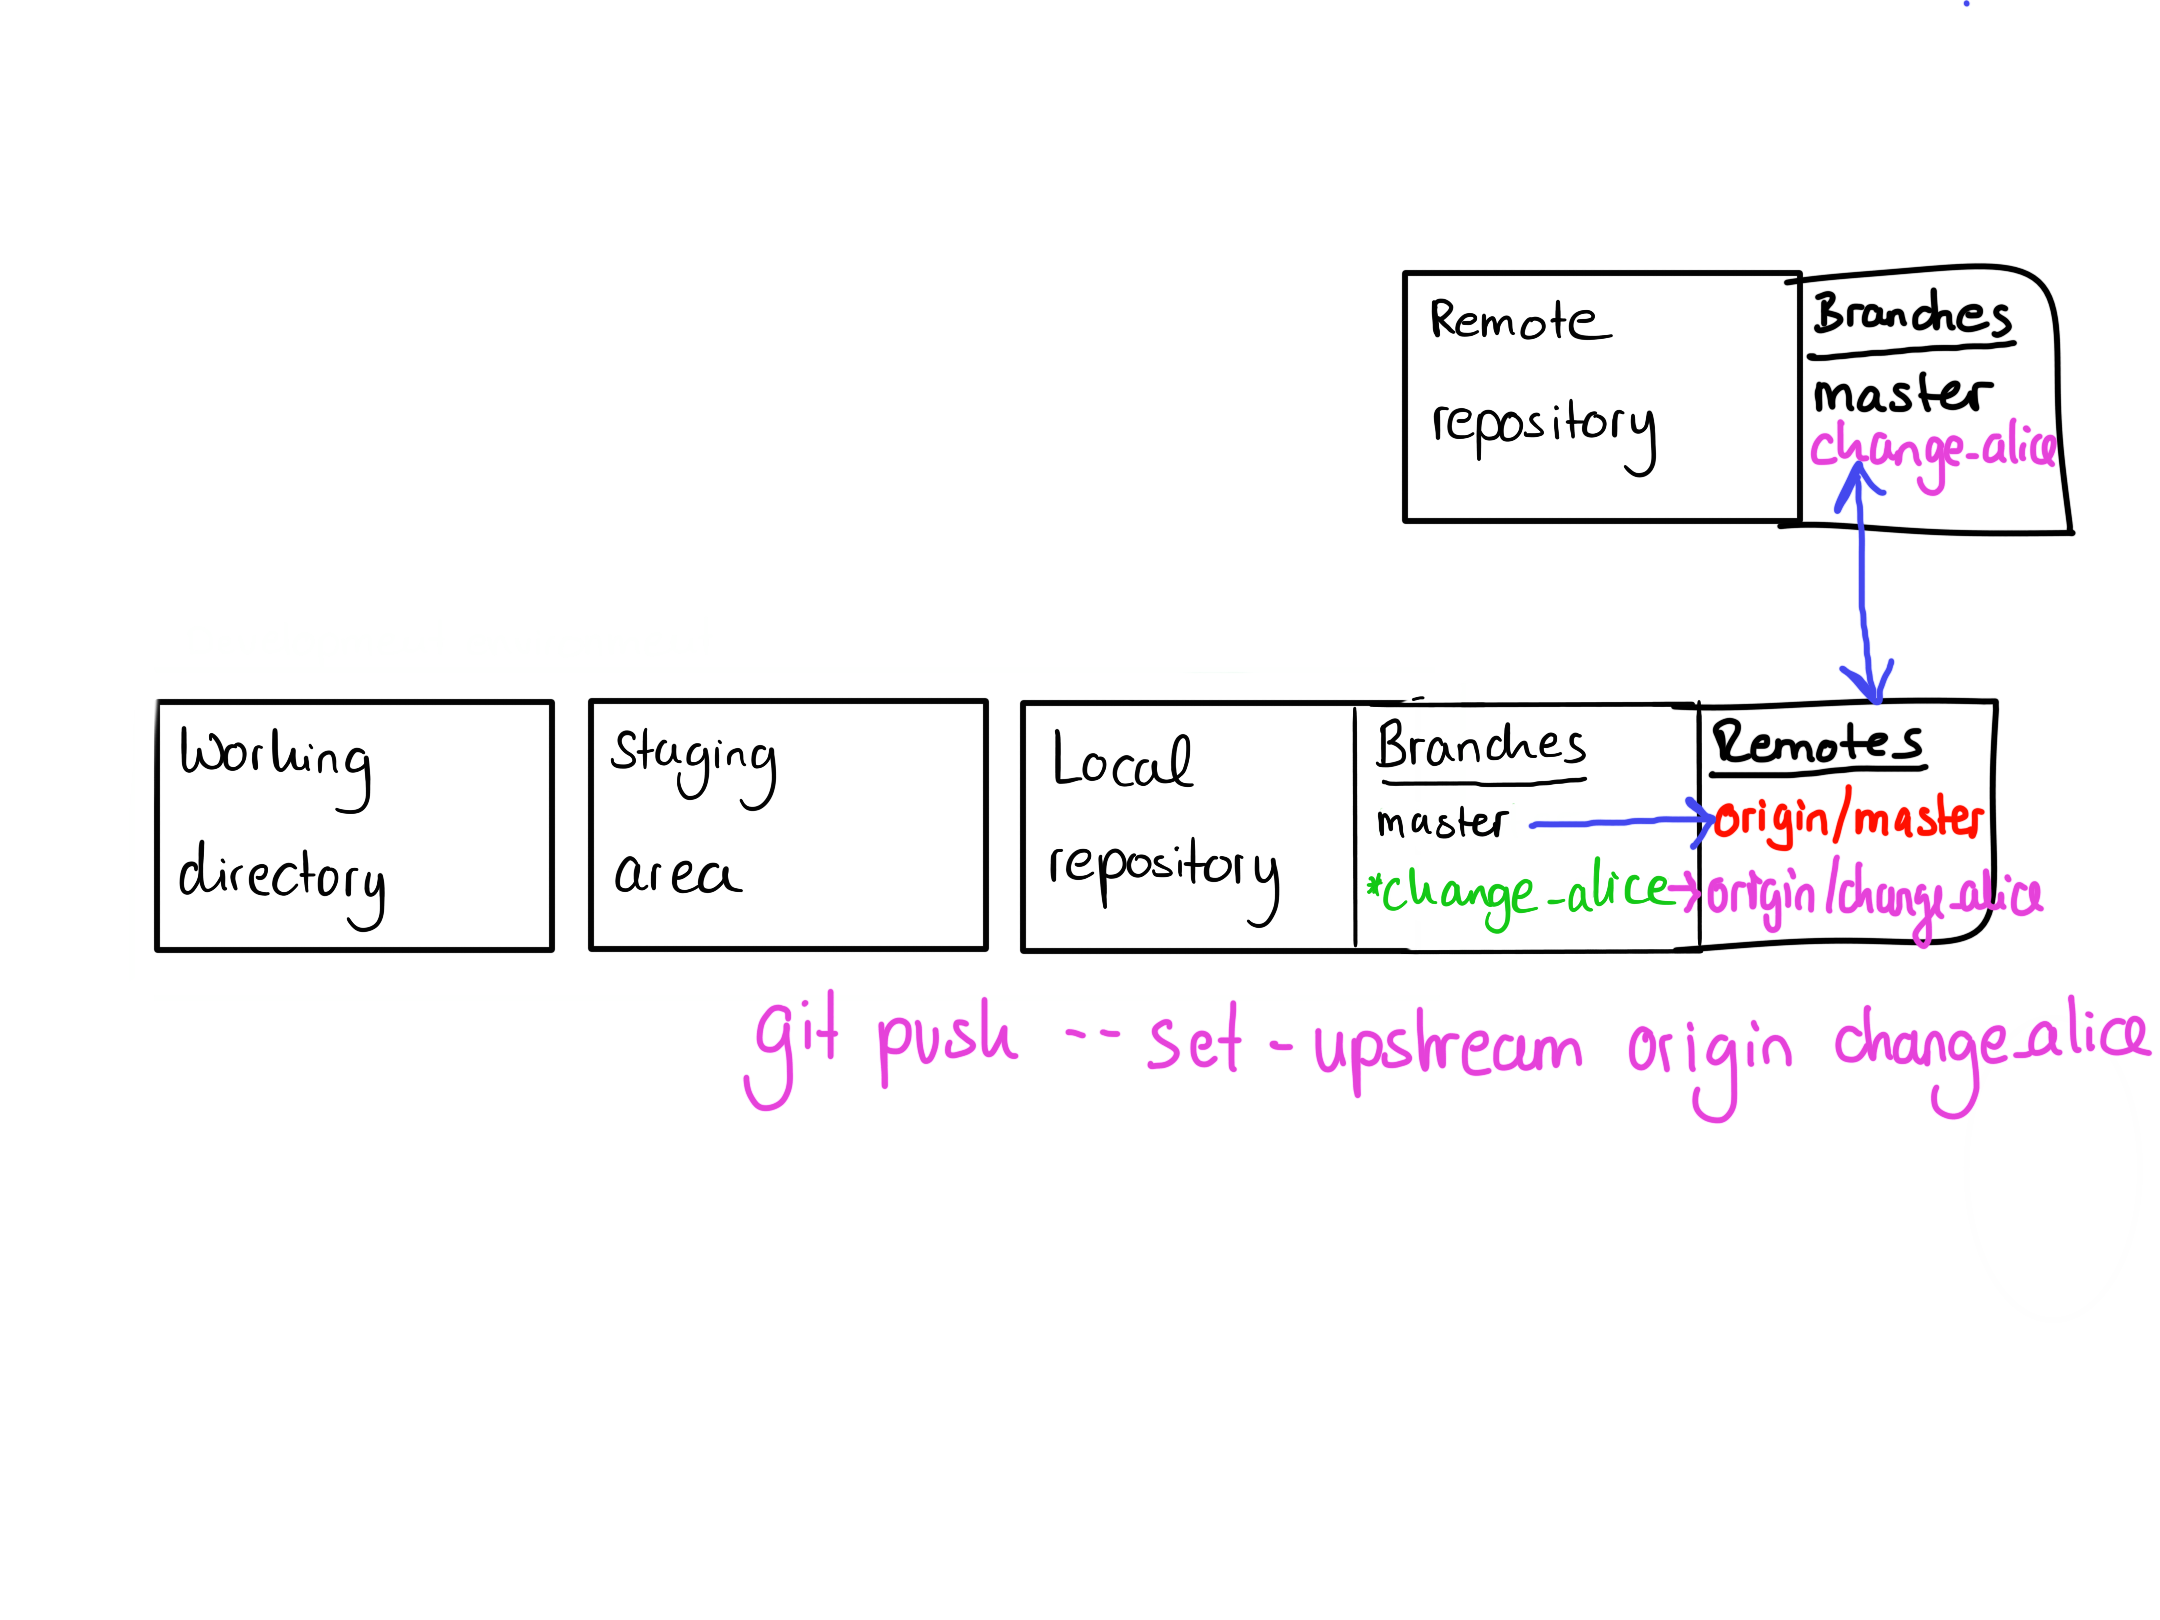 Remote
repository
Branches
master
change_alice
Working
directory
Staging
area
Local
repository
Branches
master
*change_alice
Remotes
origin/master
origin/change_alice
git push --set-upstream origin change_alice